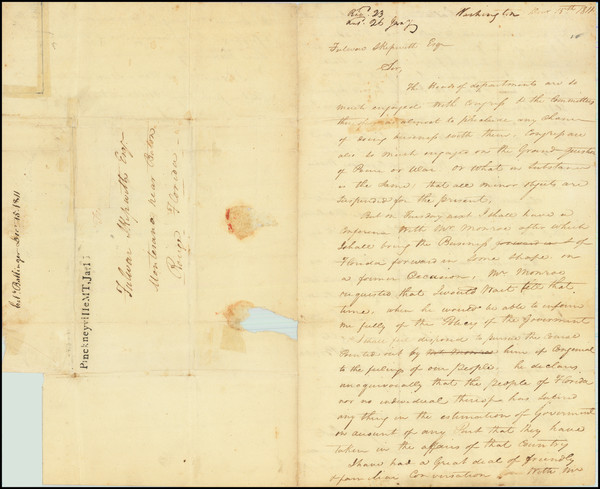 Washington Decr 15th 1811
Fulwar Skipwith Esqr
Sir,
The Heads of departments are so
much engaged with Congress & the Committees
of doing business with them. Congress are
also so much engaged on the Grand question
of Peace or War or what in substance
is the same that all minor objects are
suspended for the present.
But on Thursday next I shall have a
conference with Mr Monroe after which
I shall bring the Business of
Florida forward in some shape on
a former Occasion, Mr Monroe
requested that I would wait till that
time when he would be able to inform
me fully of the Policy of the Government
I feel disposed to pursue the course
Pointed out by him if Congenial
to the feelings of our people. he declares
unequivocally that the people of Florida
nor no individual thereof has
any thing in the estimation of Government
on account of any Part that they have
taken in the affairs of that Country
I have had a Great deal of friendly
Conversation with Mr
Fulwar Skipwith Esqr
Montesano near Baton
Rouge Florida
Pinckneyville M.T. Jan
Decr 15. 1811